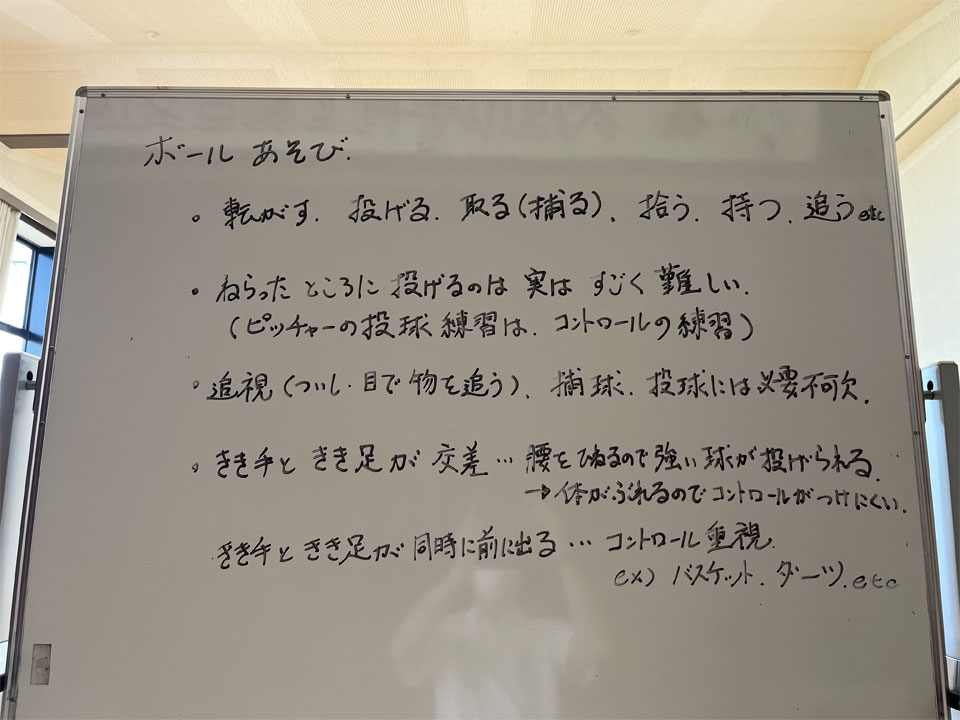 ボールあそび.
。転がす. 投げる. 取る(捕る). 拾う. 持つ. 追うetc
・ねらったところに投げるのは実はすごく難しい.
(ピッチャーの投球練習は. コントロールの練習)
。追視(ついし・目で物を追う). 捕球. 投球には必要不可欠.
。きき手ときき足が交差…腰をひねるので強い球が投げられる.
→体がぶれるのでコントロールがつけにくい.
・きき手ときき足が同時に前に出る…コントロール重視.
ex) バスケット. ダーツ. etc